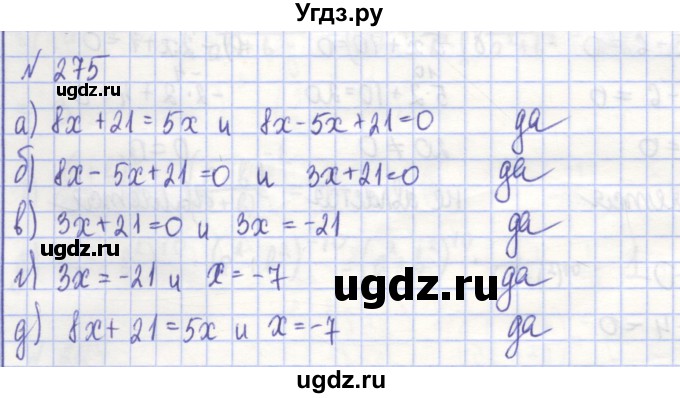 Угдз.ру
№ 275
а) 8x + 21 = 5x и 8x - 5x + 21 = 0 да
б) 8x - 5x + 21 = 0 и 3x + 21 = 0 да
ugdz.ru
в) 3x + 21 = 0 и 3x = -21 да
ugdz.ru
г) 3x = -21 и x = -7 да
ugdz.ru
д) 8x + 21 = 5x и x = -7 да
ugdz.ru
ugdz.ru